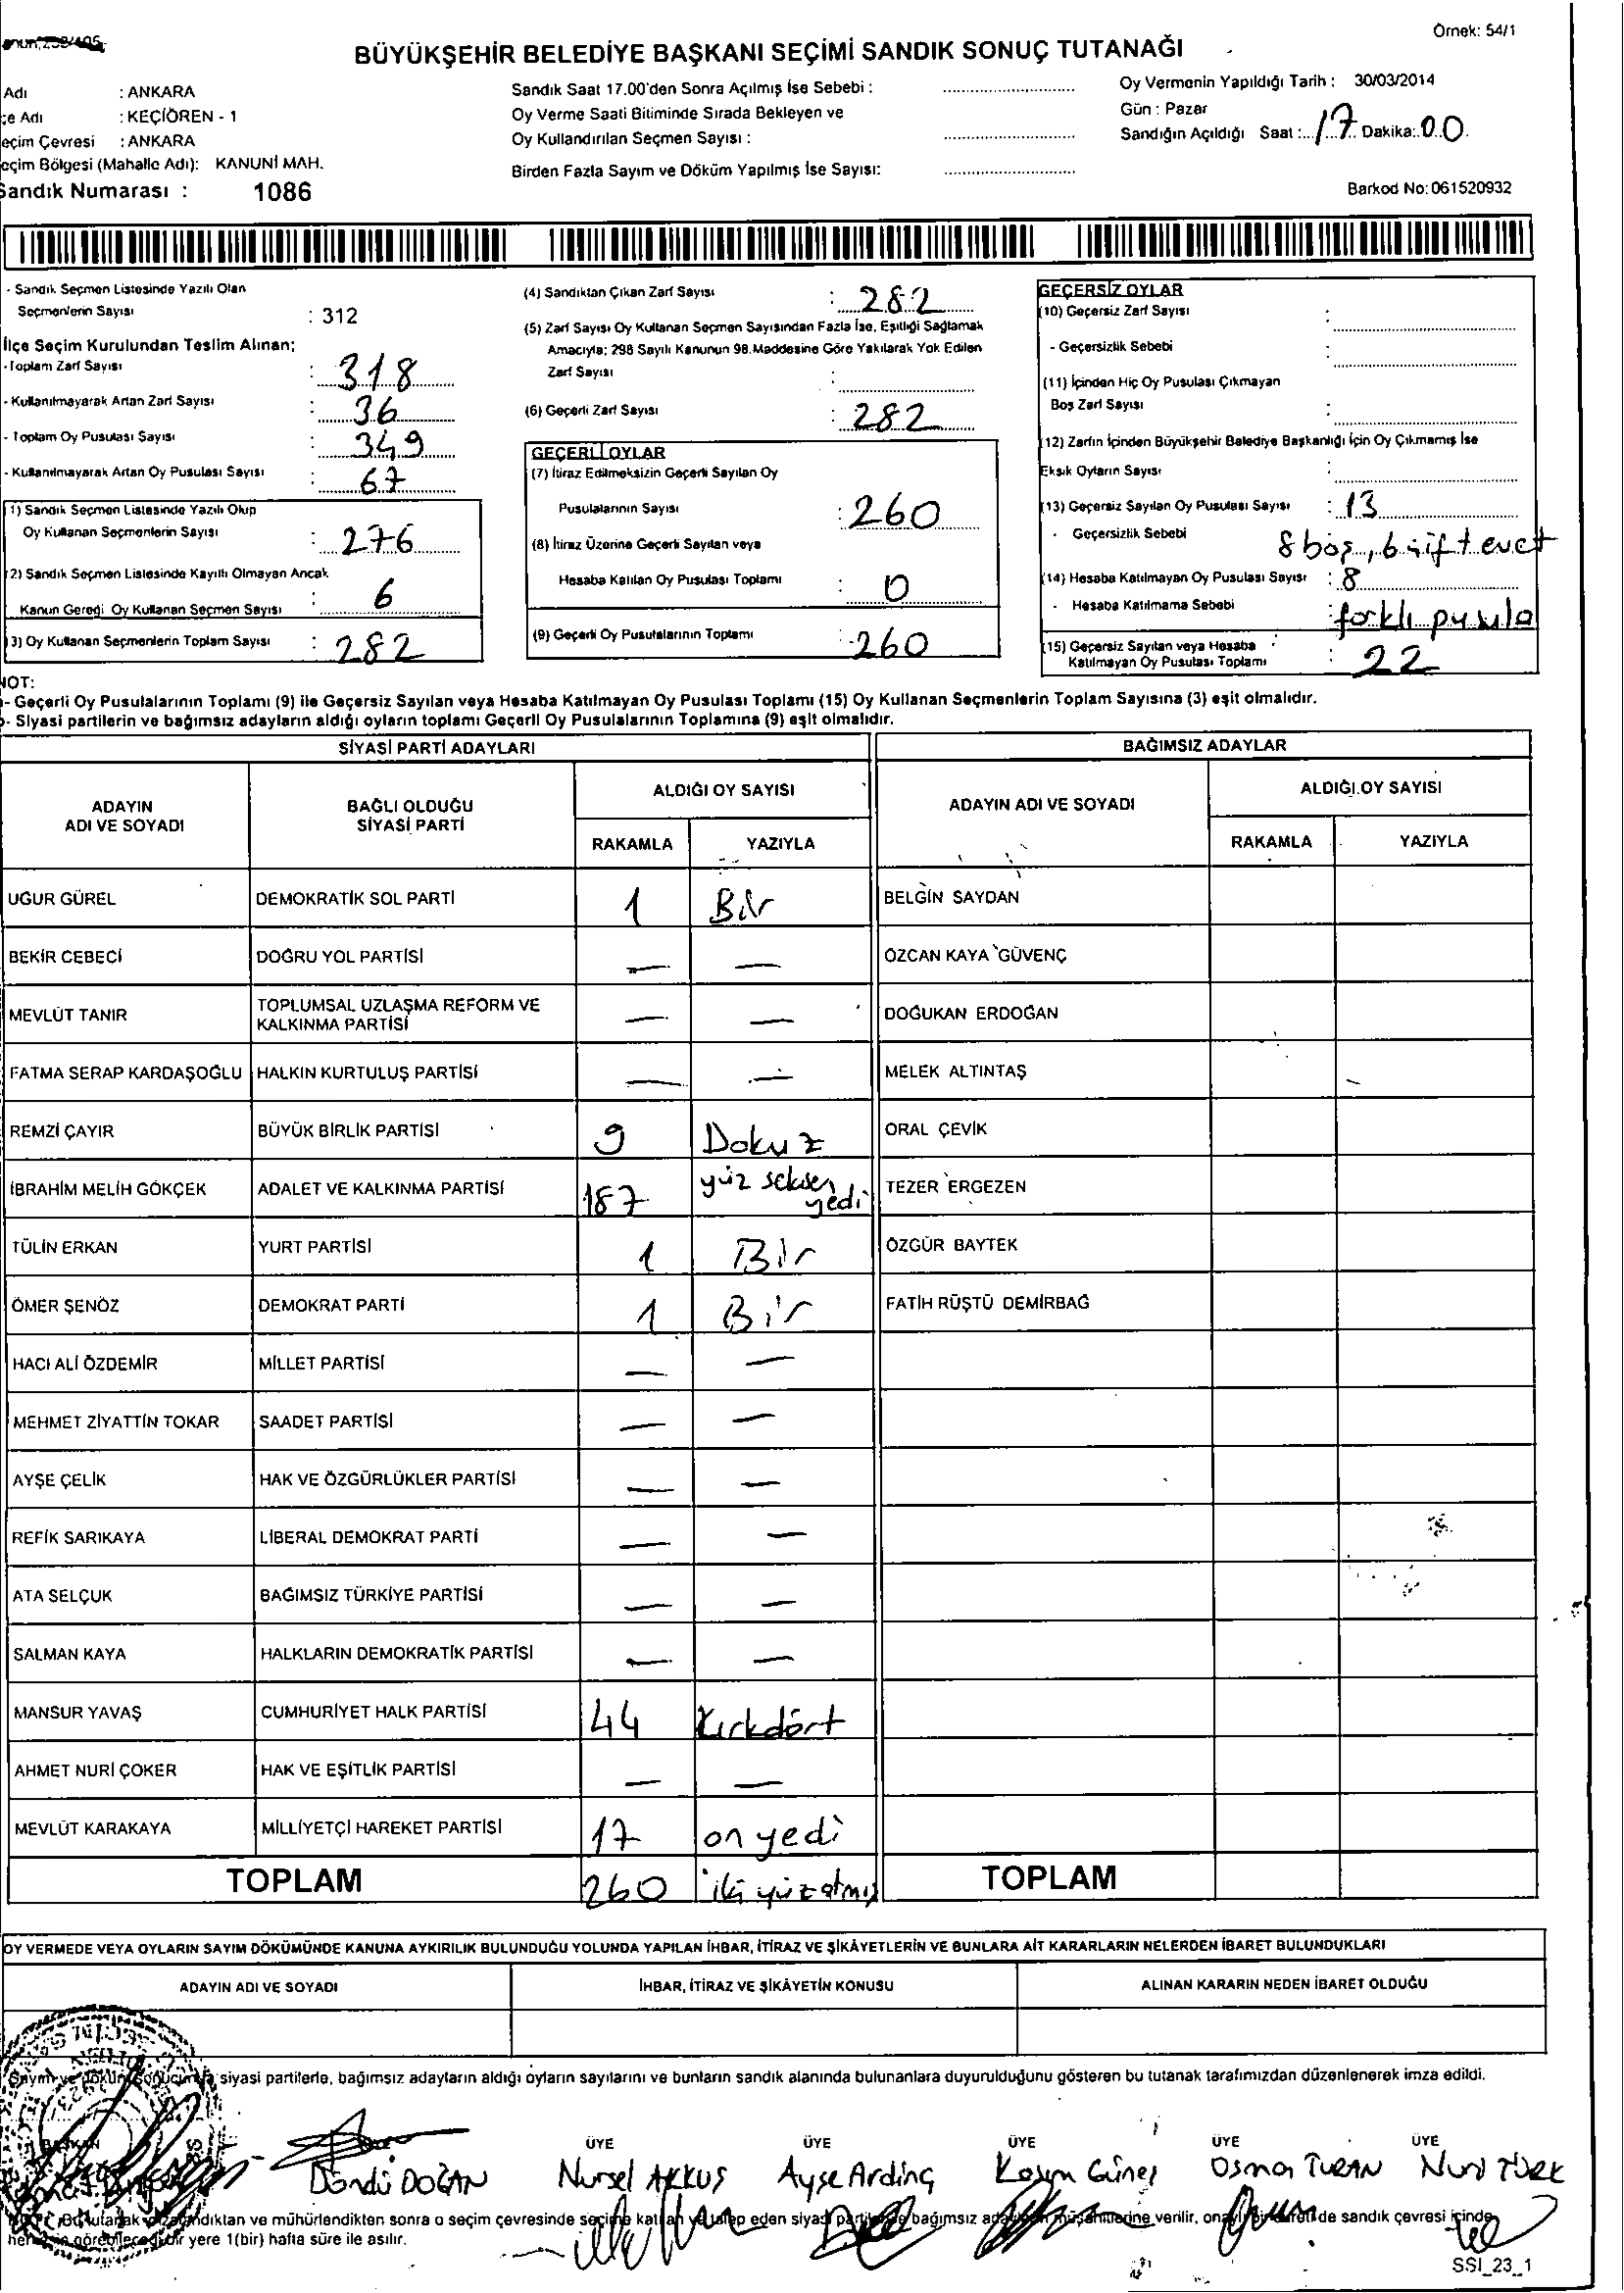 Örnek: 54/1
BÜYÜKŞEHİR BELEDİYE BAŞKANI SEÇİMİ SANDIK SONUÇ TUTANAĞI
Adı : ANKARA
çe Adı : KEÇİÖREN - 1
eçim Çevresi : ANKARA
eçim Bölgesi (Mahalle Adı): KANUNİ MAH.
Sandık Numarası : 1086
Sandık Saat 17.00'den Sonra Açılmış İse Sebebi :
Oy Verme Saati Bitiminde Sırada Bekleyen ve
Oy Kullandırılan Seçmen Sayısı :
Birden Fazla Sayım ve Döküm Yapılmış İse Sayısı:
Oy Vermenin Yapıldığı Tarih : 30/03/2014
Gün : Pazar
Sandığın Açıldığı Saat : 17 Dakika: 00
Barkod No: 061520932
- Sandık Seçmen Listesinde Yazılı Olan
Seçmenlerin Sayısı : 312
İlçe Seçim Kurulundan Teslim Alınan;
-Toplam Zarf Sayısı : 318
- Kullanılmayarak Artan Zarf Sayısı : 36
- Toplam Oy Pusulası Sayısı : 349
- Kullanılmayarak Artan Oy Pusulası Sayısı : 67
1) Sandık Seçmen Listesinde Yazılı Olup
Oy Kullanan Seçmenlerin Sayısı : 276
2) Sandık Seçmen Listesinde Kayıtlı Olmayan Ancak
Kanun Gereği Oy Kullanan Seçmen Sayısı : 6
3) Oy Kullanan Seçmenlerin Toplam Sayısı : 282
(4) Sandıktan Çıkan Zarf Sayısı : 282
(5) Zarf Sayısı Oy Kullanan Seçmen Sayısından Fazla İse, Eşitliği Sağlamak
Amacıyla; 298 Sayılı Kanunun 98.Maddesine Göre Yakılarak Yok Edilen
Zarf Sayısı :
(6) Geçerli Zarf Sayısı : 282
GEÇERLİ OYLAR
(7) İtiraz Edilmeksizin Geçerli Sayılan Oy
Pusulalarının Sayısı : 260
(8) İtiraz Üzerine Geçerli Sayılan veya
Hesaba Katılan Oy Pusulası Toplamı : 0
(9) Geçerli Oy Pusulalarının Toplamı : 260
GEÇERSİZ OYLAR
(10) Geçersiz Zarf Sayısı :
- Geçersizlik Sebebi
(11) İçinden Hiç Oy Pusulası Çıkmayan
Boş Zarf Sayısı :
(12) Zarfın İçinden Büyükşehir Belediye Başkanlığı İçin Oy Çıkmamış İse
Eksik Oyların Sayısı :
(13) Geçersiz Sayılan Oy Pusulası Sayısı : 13
- Geçersizlik Sebebi 8 boş, 6 çift evet
(14) Hesaba Katılmayan Oy Pusulası Sayısı : 8
- Hesaba Katılmama Sebebi : farklı pusula
(15) Geçersiz Sayılan veya Hesaba
Katılmayan Oy Pusulası Toplamı : 22
NOT:
- Geçerli Oy Pusulalarının Toplamı (9) ile Geçersiz Sayılan veya Hesaba Katılmayan Oy Pusulası Toplamı (15) Oy Kullanan Seçmenlerin Toplam Sayısına (3) eşit olmalıdır.
- Siyasi partilerin ve bağımsız adayların aldığı oyların toplamı Geçerli Oy Pusulalarının Toplamına (9) eşit olmalıdır.
SİYASİ PARTİ ADAYLARI BAĞIMSIZ ADAYLAR
ADAYIN ADI VE SOYADI BAĞLI OLDUĞU SİYASİ PARTİ ALDIĞI OY SAYISI ADAYIN ADI VE SOYADI ALDIĞI OY SAYISI
RAKAMLA YAZIYLA RAKAMLA YAZIYLA
UĞUR GÜREL DEMOKRATİK SOL PARTİ 1 Bir BELGİN SAYDAN
BEKİR CEBECİ DOĞRU YOL PARTİSİ — — ÖZCAN KAYA GÜVENÇ
MEVLÜT TANIR TOPLUMSAL UZLAŞMA REFORM VE KALKINMA PARTİSİ — — DOĞUKAN ERDOĞAN
FATMA SERAP KARDAŞOĞLU HALKIN KURTULUŞ PARTİSİ — — MELEK ALTINTAŞ
REMZİ ÇAYIR BÜYÜK BİRLİK PARTİSİ 9 Dokuz ORAL ÇEVİK
İBRAHİM MELİH GÖKÇEK ADALET VE KALKINMA PARTİSİ 187 yüz seksen yedi TEZER ERGEZEN
TÜLİN ERKAN YURT PARTİSİ 1 Bir ÖZGÜR BAYTEK
ÖMER ŞENÖZ DEMOKRAT PARTİ 1 Bir FATİH RÜŞTÜ DEMİRBAĞ
HACI ALİ ÖZDEMİR MİLLET PARTİSİ — —
MEHMET ZİYATTİN TOKAR SAADET PARTİSİ — —
AYŞE ÇELİK HAK VE ÖZGÜRLÜKLER PARTİSİ — —
REFİK SARIKAYA LİBERAL DEMOKRAT PARTİ — —
ATA SELÇUK BAĞIMSIZ TÜRKİYE PARTİSİ — —
SALMAN KAYA HALKLARIN DEMOKRATİK PARTİSİ — —
MANSUR YAVAŞ CUMHURİYET HALK PARTİSİ 44 Kırkdört
AHMET NURİ ÇOKER HAK VE EŞİTLİK PARTİSİ — —
MEVLÜT KARAKAYA MİLLİYETÇİ HAREKET PARTİSİ 17 on yedi
TOPLAM 260 iki yüz atmış TOPLAM
OY VERMEDE VEYA OYLARIN SAYIM DÖKÜMÜNDE KANUNA AYKIRILIK BULUNDUĞU YOLUNDA YAPILAN İHBAR, İTİRAZ VE ŞİKÂYETLERİN VE BUNLARA AİT KARARLARIN NELERDEN İBARET BULUNDUKLARI
ADAYIN ADI VE SOYADI İHBAR, İTİRAZ VE ŞİKÂYETİN KONUSU ALINAN KARARIN NEDEN İBARET OLDUĞU
Sayım ve döküm sonucunda siyasi partilerle, bağımsız adayların aldığı oyların sayılarını ve bunların sandık alanında bulunanlara duyurulduğunu gösteren bu tutanak tarafımızdan düzenlenerek imza edildi.
BAŞKAN ÜYE ÜYE ÜYE ÜYE ÜYE
Döndü DOĞAN Nursel AKKUŞ Ayşe Ardinç Kasım Güneş Osman TURAN Nuri TÜRK
Bu tutanak ve mühürlendikten sonra o seçim çevresinde seçime katılan ve talep eden siyasi parti bağımsız müşahitlerine verilir, onaylı bir sureti de sandık çevresi içinde
görebileceği bir yere 1(bir) hafta süre ile asılır.
SSI_23_1